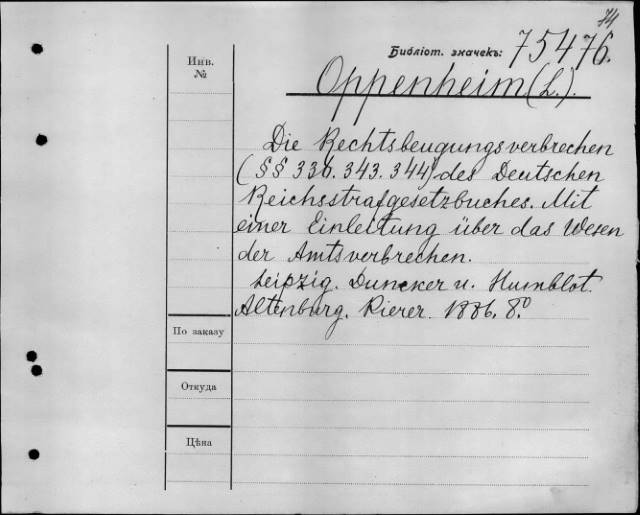 74
Библіот. значекъ: 75476.
Инв.
№
Oppenheim (L.).
Die Rechtsbeugungsverbrechen
(§§ 336. 343. 344) des Deutschen
Reichsstrafgesetzbuches. Mit
einer Einleitung über das Wesen
der Amtsverbrechen.
Leipzig. Duncker u. Humblot.
Altenburg. Pierer. 1886. 8º
По заказу
Откуда
Цѣна